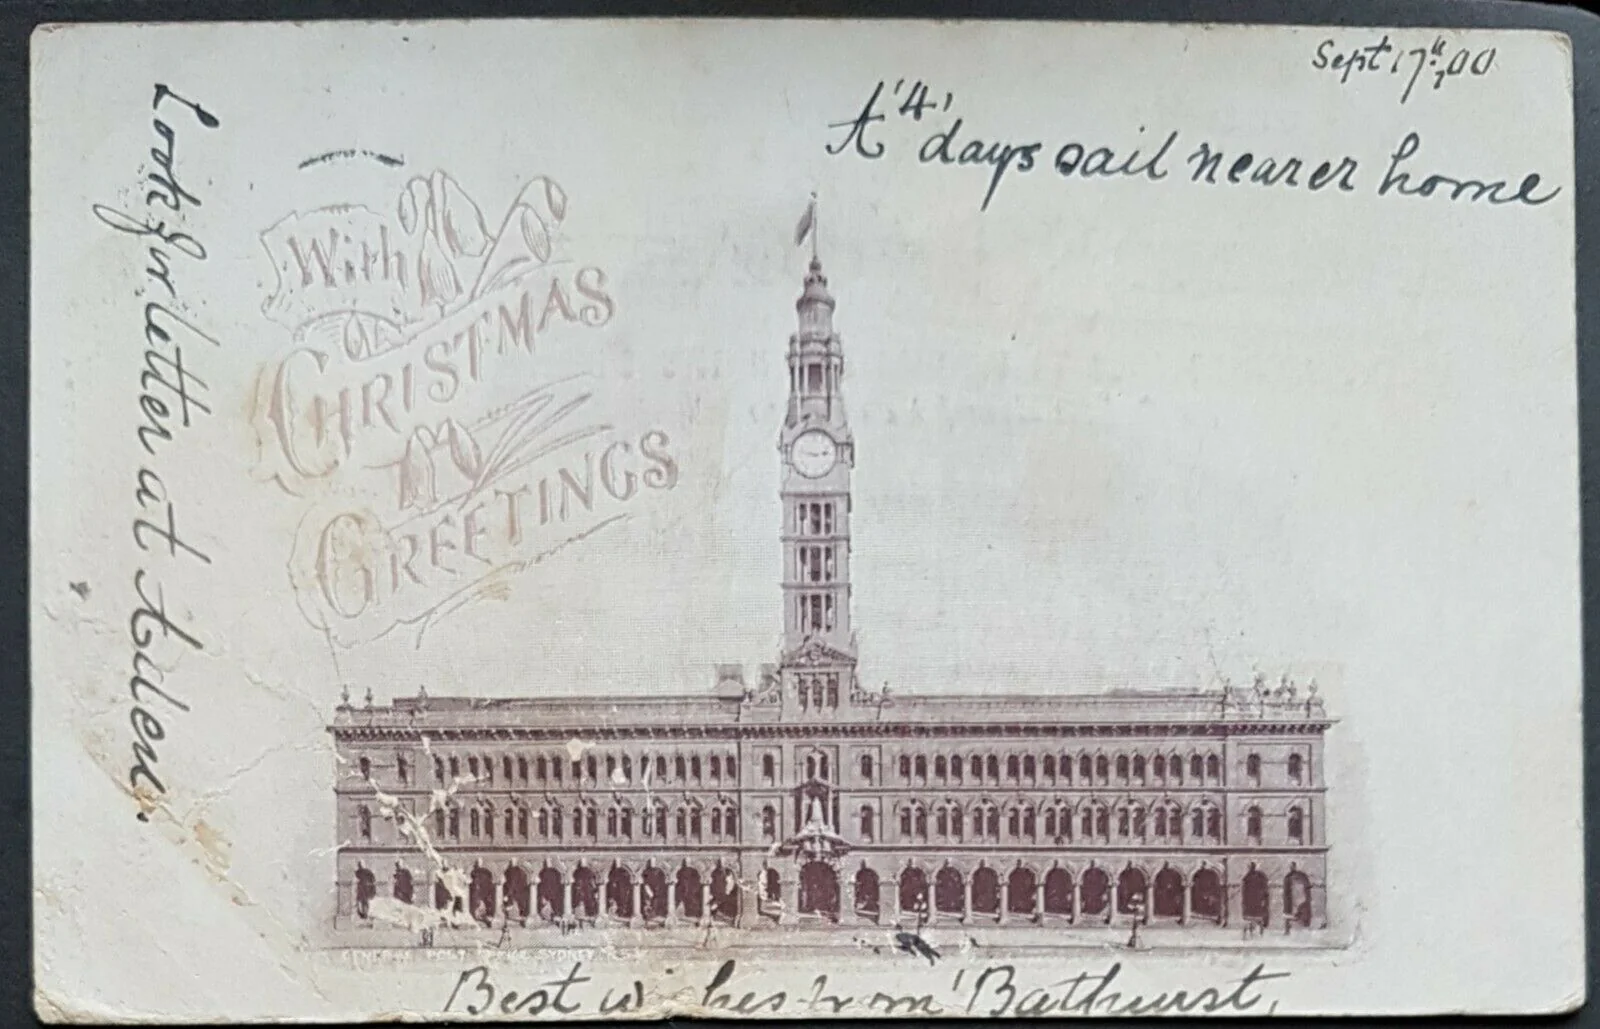 Sept 17th, 00
A '4' days sail nearer home
Look for letter at Aden.
With
CHRISTMAS
GREETINGS
GENERAL POST OFFICE SYDNEY
Best wishes from 'Bathurst,